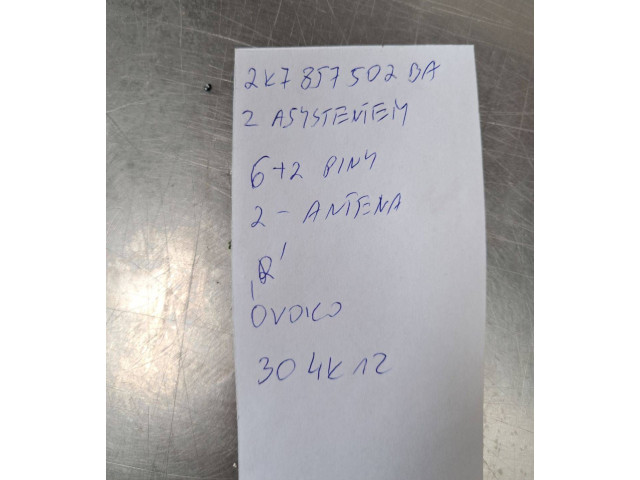 2K7 857 502 BA
Z ASYSTENTEM
6+2 PINY
2 - ANTENA
"R"
OVOKO
304K12